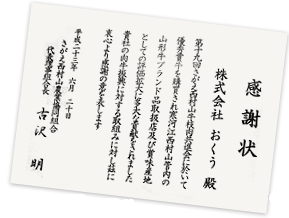 感謝状
株式会社 おくう 殿
第十九回さがえ西村山牛枝肉共進会に於いて
優秀賞牛を購買され寒河江西村山管内の
山形牛ブランド品取扱店及び賞味産地
としての評価拡大に多大な貢献をされました
貴社の肉牛振興に対する取組みに対し茲に
衷心より感謝の意を表します
平成二十三年 六月 二十日
さがえ西村山農業協同組合
代表理事組合長 古沢 明